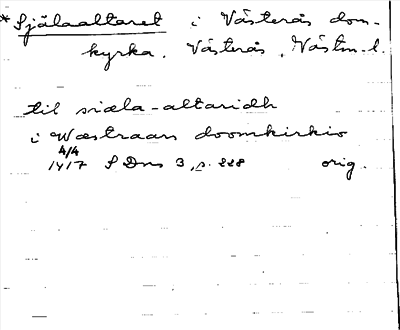 * Själaaltaret i Västerås dom-
kyrka. Västerås, Västm. l.
til siæla-altaridh
i Wæstraars doomkirkio
4/4
1417 SDns 3, s. 228 orig.